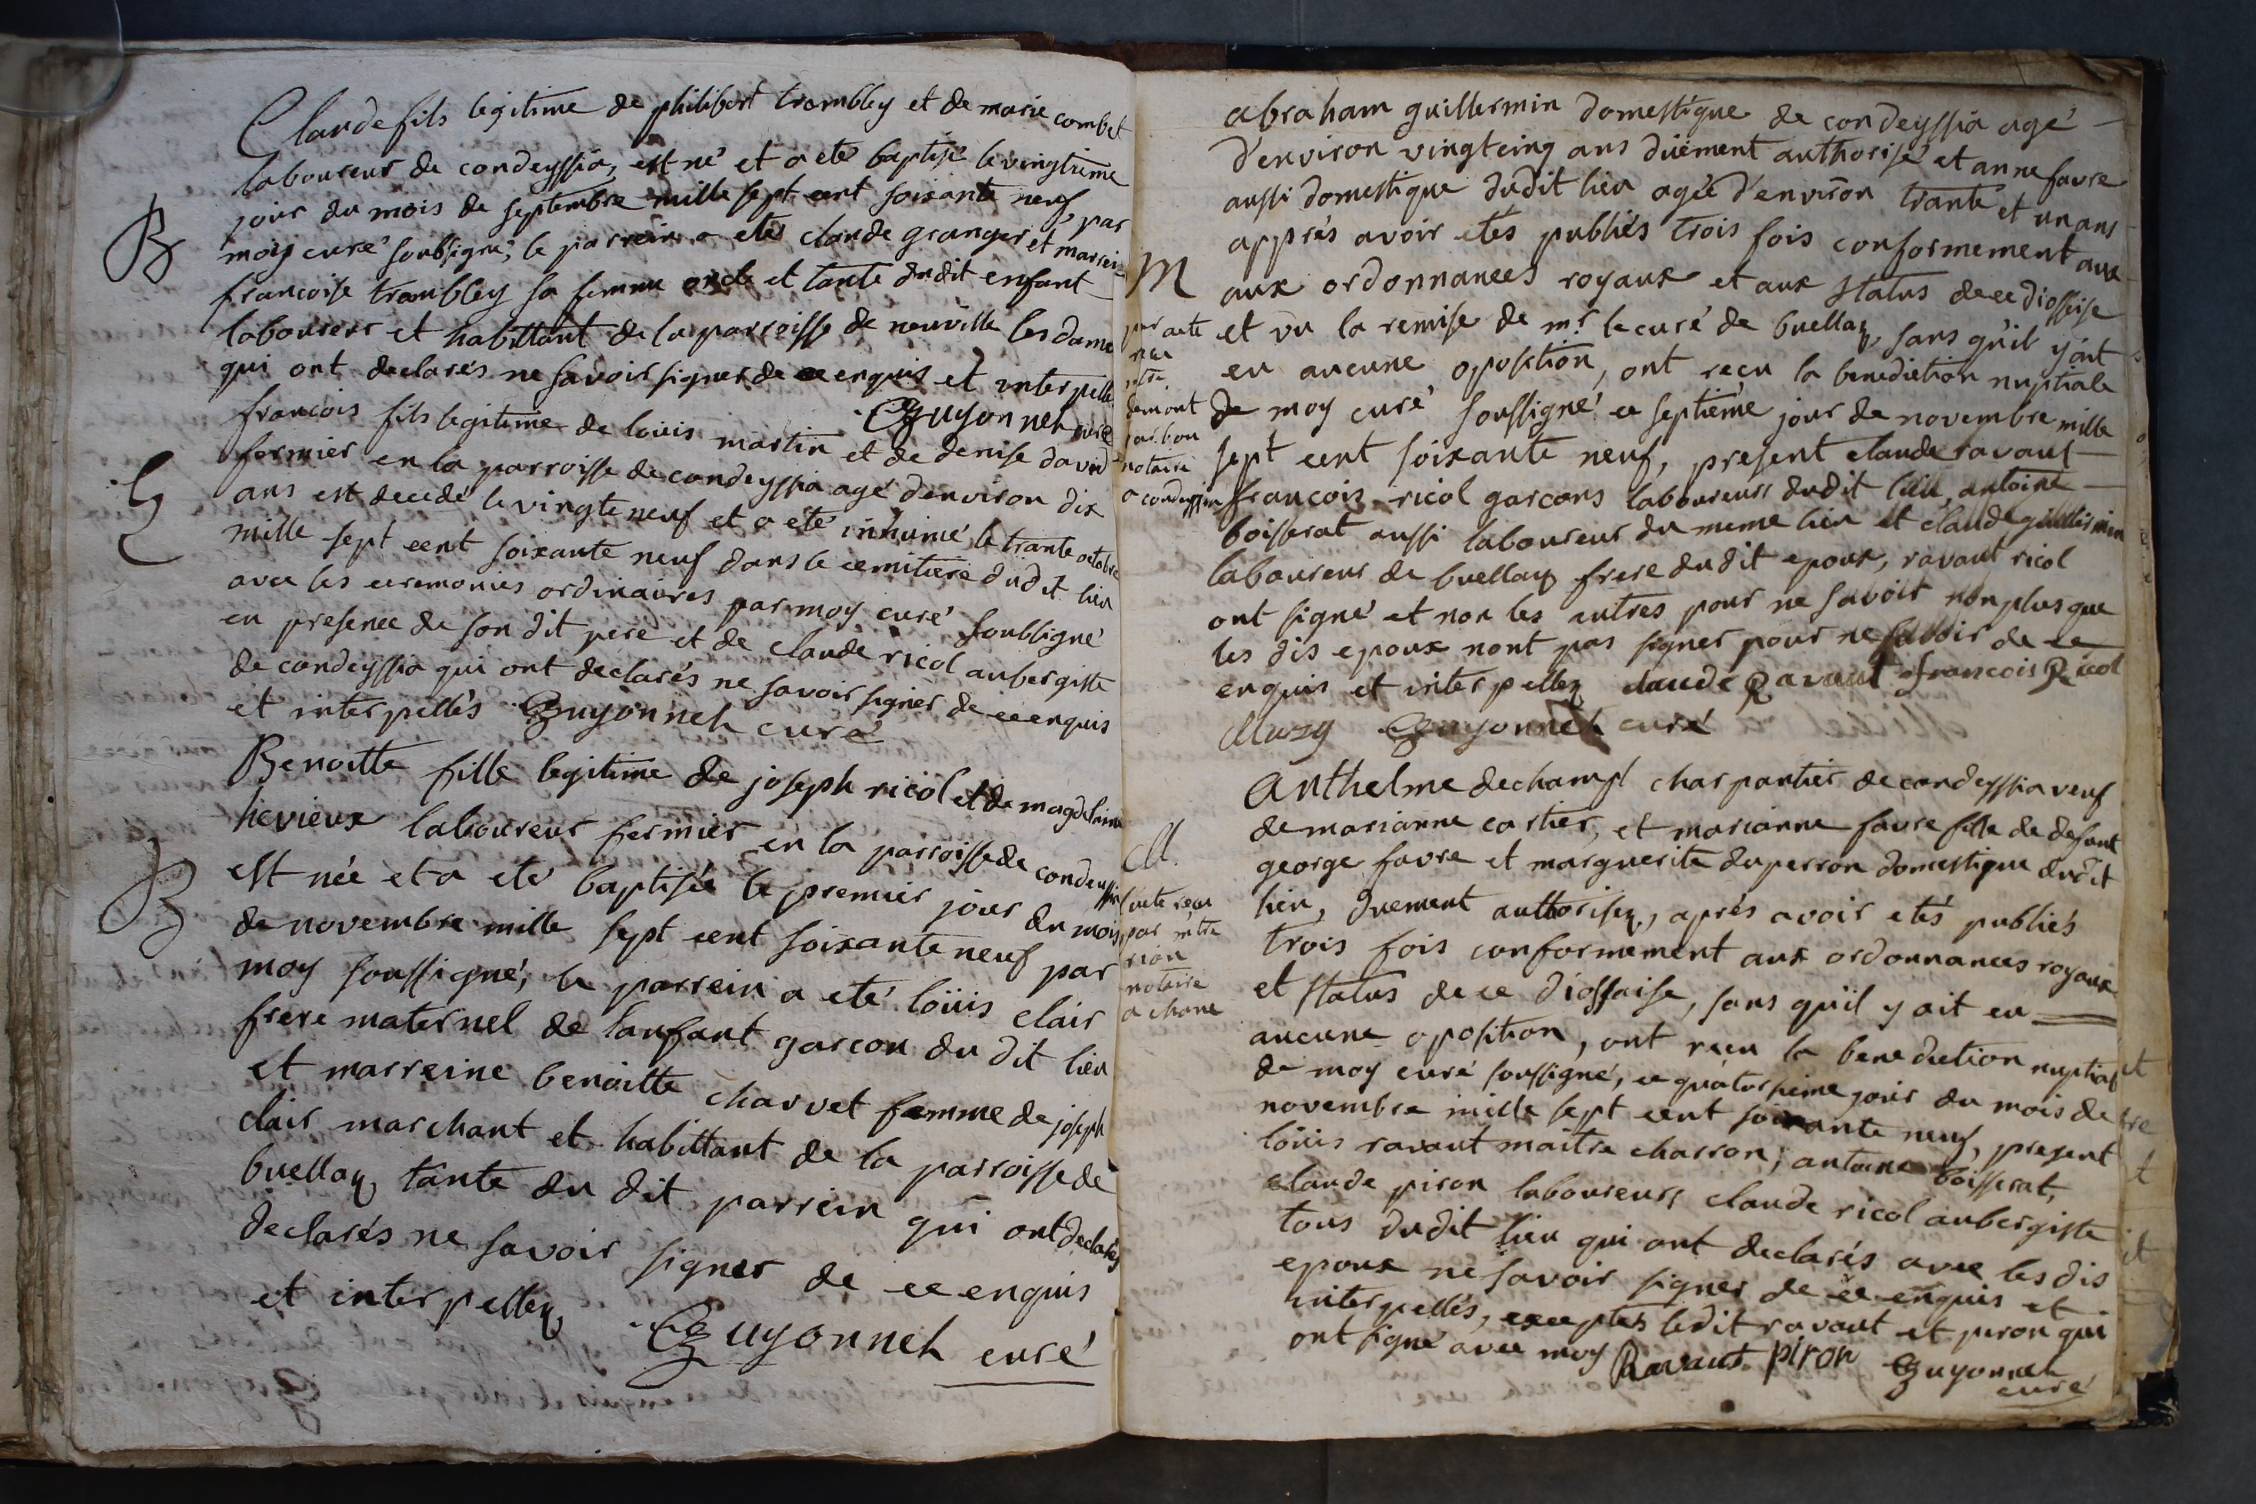 Claude fils legitime de philibert trambley et de marie combet
laboureur de condeyssia, est né et a eté baptisé le vingtieme
jour du mois de septembre mille sept cent soixante neuf, par
B
moy curé soubsigné, le parrein a eté claude granger et marrei-
francoise trambley sa femme oncle et tante dudit enfant
laboureur et habittant de la parroisse de neuville les dame
qui ont declarés ne savoir signer de ce enquis et interpellé
Guyonneh curé
francois fils legitime de loüis martin et de denise davud
fermier en la parroisse de condeyssia agé denviron dix
ans est decedé le vingte neuf et a eté inhumé le trante octobre
mille sept cent soixante neuf dans le cemitiere dudit lieu
avec les ceremonies ordinaires par moy curé soubsigné
en presence de son dit pere et de claude ricol aubergiste
de condeyssia qui ont declarés ne savoir signer de ce enquis
et interpellés Guyonneh curé
Benoitte fille legitime de joseph ricol et de magdelaine
hevieux laboureur fermier en la parroisse de condeyssia
est née et a eté baptisée le premier jour du mois
B
de novembre mille sept cent soixante neuf par
moy soussigné, le parrein a eté loüis clair
frere maternel de lanfant garcon du dit lieu
et marreine benoitte charvet femme de joseph
clair marchant et habittant de la parroisse de
buellaz tante du dit parrein qui ont declarés
declarés ne savoir signer de ce enquis
et interpellez
Guyonneh curé
abraham guillermin domestique de condeyssia agé
d'environ vingtcinq ans düement authorisé et anne favre
aussi domestique dudit lieu agée d'environ trante et un ans
apprés avoir etés publiés trois fois conformement aux
M
aux ordonnances royaux et aux status de ce diosseise
et vu la remise de mr. le curé de buellaz, sans qu'il y ait
eu aucune oposition, ont recu la benediction nuptiale
de moy curé soussigné ce septieme jour de novembre mille
sept cent soixante neuf, present claude ravaut
francois ricol garcons laboureurs dudit lieu, antoine
boisserat aussi laboureur du meme lieu et claude guillermin
laboureur de buellaz frere dudit epoux, ravaut ricol
ont signé et non les autres pour ne savoir non plus que
les dis epoux nont pas signer pour ne savoir de ce
enquis et interpellez claude Ravaut francois Ricol
Guyonneh curé
par acte
recu
mtre
notaire
a condeyssia
Anthelme dechamp charpantier de condeyssia veuf
de marianne cartier, et marianne favre fille de defunt
george favre et marguerite duperron domestique dudit
lieu, duement authorisez, aprés avoir etés publiés
trois fois conformement aux ordonnances royaux
et status de ce diossaise, sans qu'il y ait eu
aucune oposition, ont recu la benediction nuptiale
de moy curé soussigné, ce quatorsieme jour du mois de
novembre mille sept cent soixante neuf, present
loüis ravaut maitre charron, antoine boisserat,
claude piron laboureurs claude ricol aubergiste
tous dudit lieu qui ont declarés avec les dis
epoux ne savoir signer de ce enquis et
interpellés, exceptes ledit ravaut et piron qui
ont signé avec moy Ravaut piron Guyonneh
curé
M.
acte recu
par mtre
rion
notaire
a chane